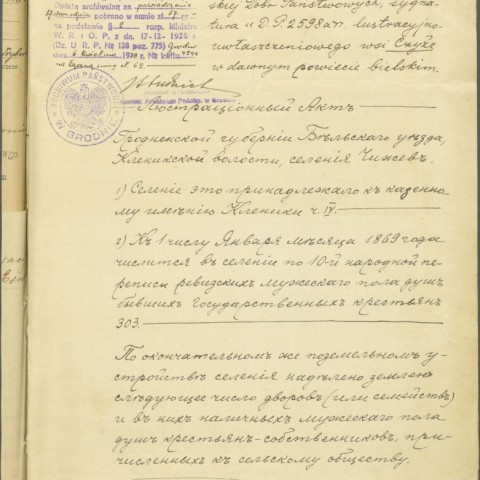 Opłatę archiwalną za
pobrano w sumie zł
na podstawie § rozp. Ministra
W. R. i O. P. z dn. 17-12-1926 r.
(Dz. U. R. P. № 128 poz. 775)
ARCHIWUM PAŃSTWOWE
W GRODNIE
skiej Dóbr Państwowych, sygna-
tura II D.P. 2598a71. lustracyjno-
uwłaszczeniowego wsi Czyże
w dawnym powiecie bielskim.
Люстраціонный Актъ
Гродненской губерніи Бѣльскаго уѣзда,
Кленикской волости, селенія Чижевъ.
1) Селеніе это принадлежало къ казенно-
му имѣнію Кленики ч. IV.
2) Къ 1 числу Января мѣсяца 1869 года
числится въ селеніи по 10-й народной пе-
реписи ревизскихъ мужескаго пола душъ
бывшихъ Государственныхъ крестьянъ
303.
По окончательномъ же поземельномъ у-
стройствѣ селенія надѣлено землею
слѣдующее число дворовъ (или семействъ)
и въ нихъ наличныхъ мужескаго пола
душъ крестьянъ-собственниковъ, при-
численныхъ къ сельскому обществу.